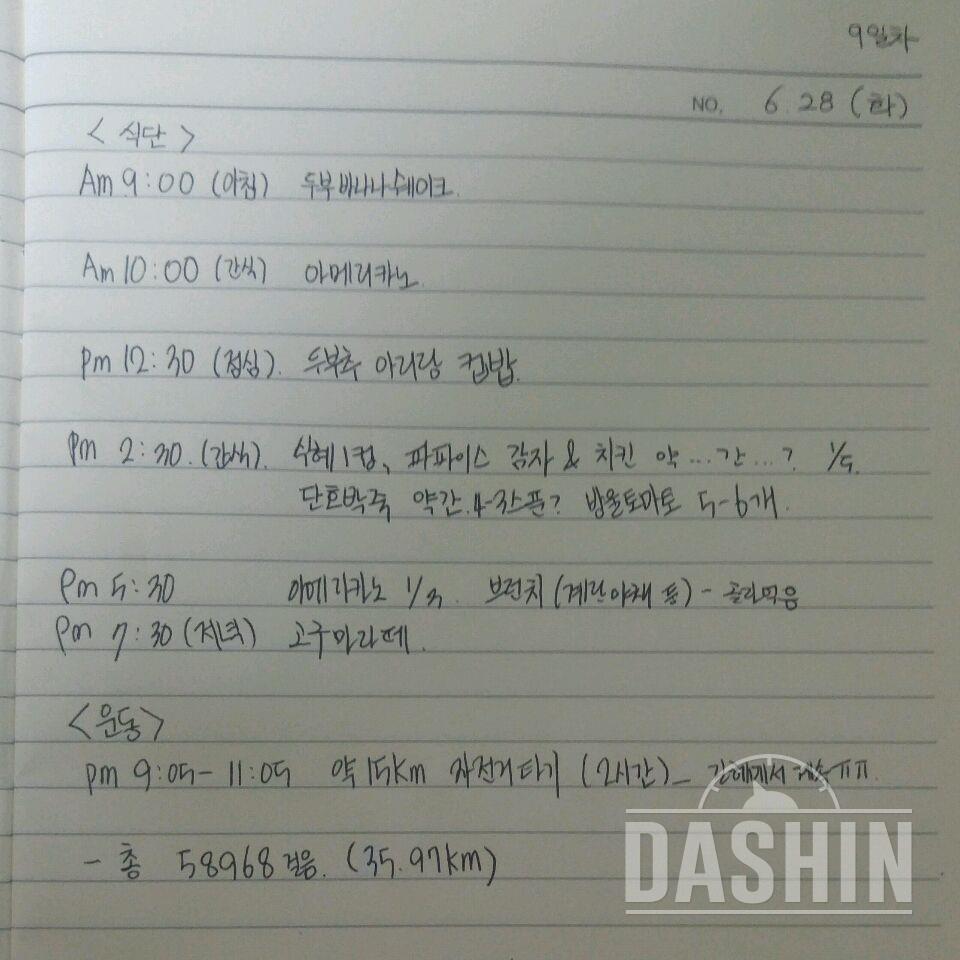 9일차
NO. 6.28 (화)
< 식단 >
Am 9:00 (아침) 두부바나나쉐이크.
Am 10:00 (간식) 아메리카노.
pm 12:30 (점심). 두부초 아리랑 컵밥.
pm 2:30. (간식). 식혜 1컵, 파파이스 감자 & 치킨 약...간...? 1/5.
단호박죽 약간. 4-3스푼? 방울토마토 5-6개.
pm 5:30 아메리카노 1/3. 브런치 (계란야채 등) - 골라먹음
pm 7:30 (저녁) 고구마라떼.
<운동>
pm 9:05-11:05 약 15km 자전거타기 (2시간)_ ㅠㅠ.
- 총 58968걸음. (35.97km)
DASHIN